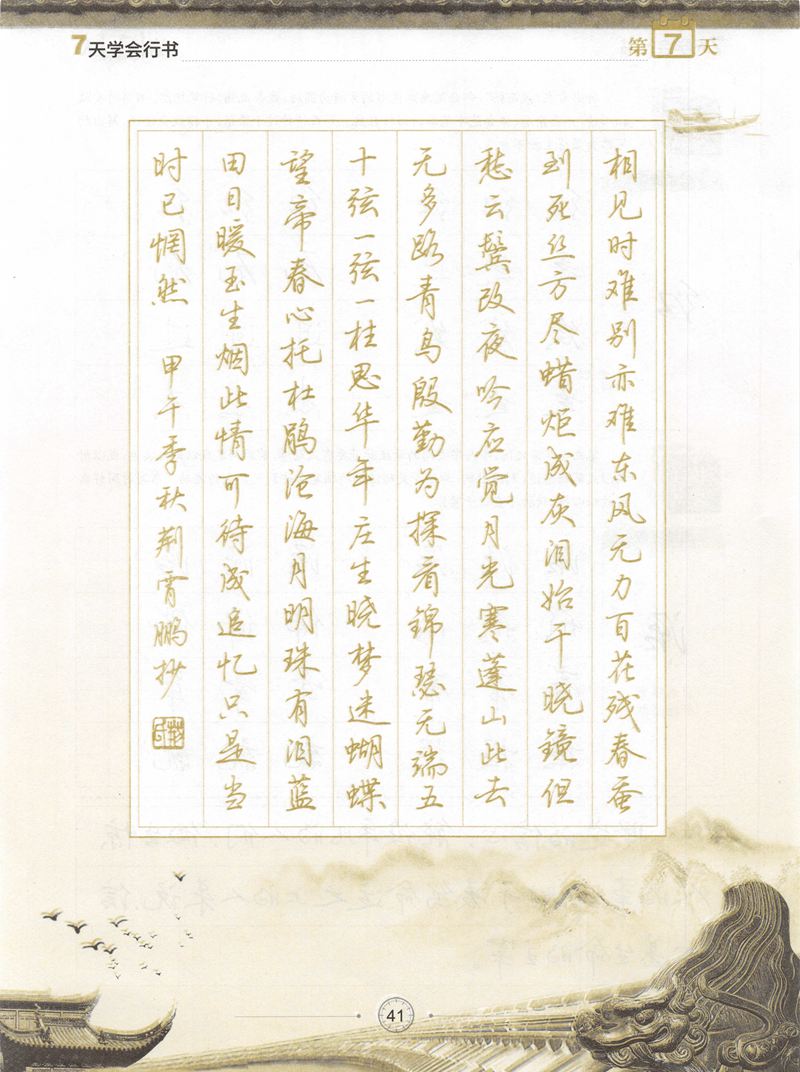 7天学会行书
第7天
相见时难别亦难东风无力百花残春蚕
到死丝方尽蜡炬成灰泪始干晓镜但
愁云鬓改夜吟应觉月光寒蓬山此去
无多路青鸟殷勤为探看锦瑟无端五
十弦一弦一柱思华年庄生晓梦迷蝴蝶
望帝春心托杜鹃沧海月明珠有泪蓝
田日暖玉生烟此情可待成追忆只是当
时已惘然 甲午季秋荆霄鹏抄
41